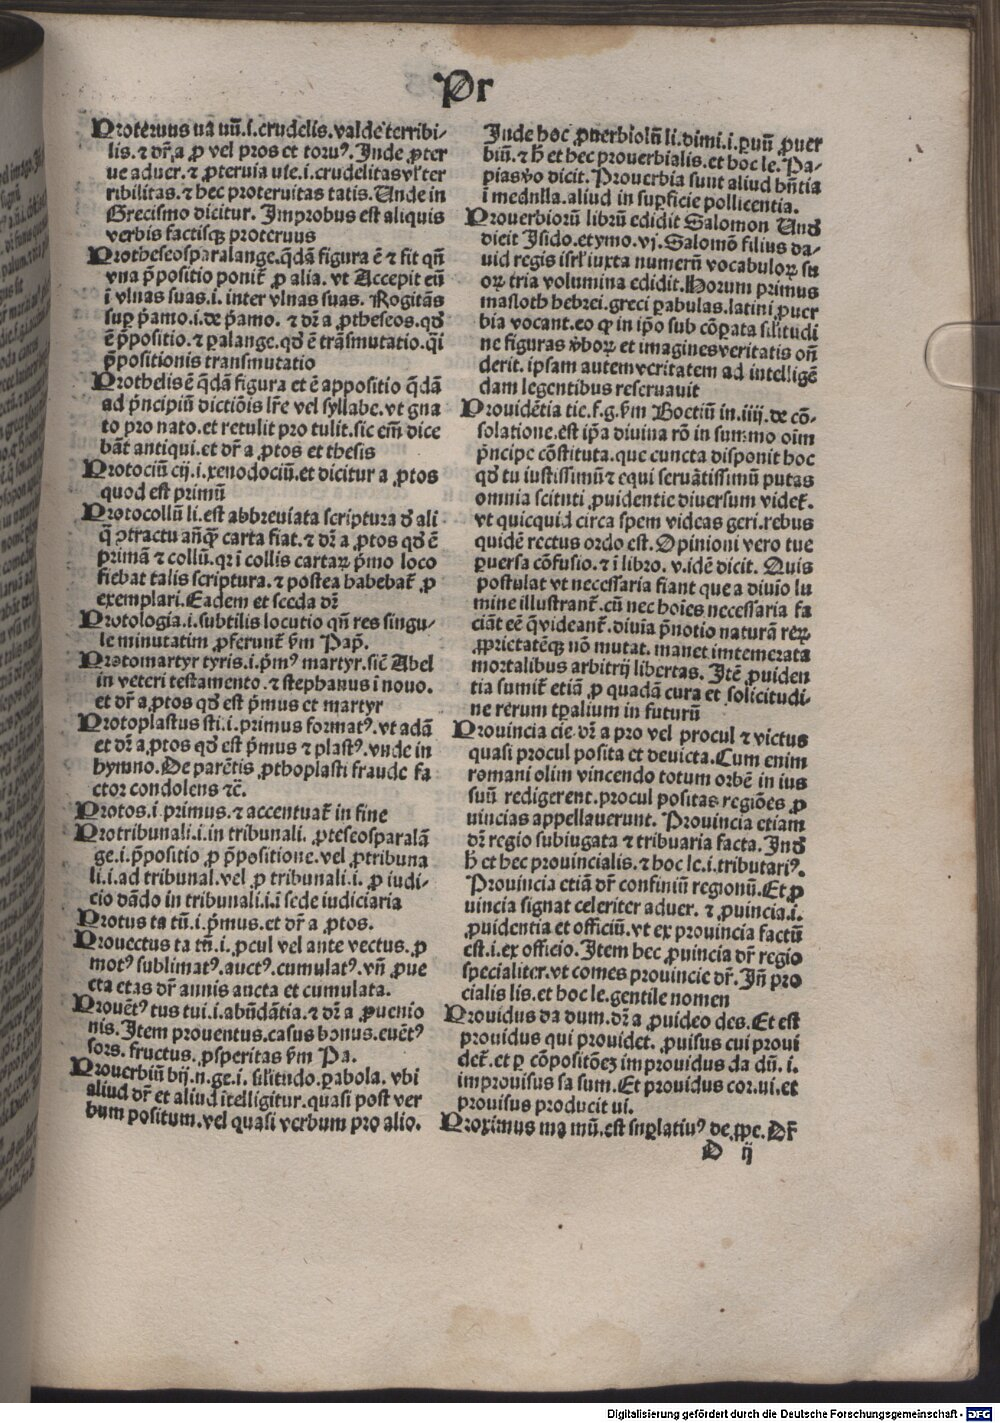 Pr
Proteruus ua uū.i.crudelis.valde terribi-
lis.⁊ dr̄.a ꝓ vel pros et toruꝰ. Inde ꝓter
ue aduer.⁊ ꝓteruia uie.i.crudelitas vl̓ ter
ribilitas.⁊ hec proteruitas tatis. Unde in
Grecismo dicitur. Improbus est aliquis
verbis factisqꝫ proteruus
Protheseosparalange.q̄dā figura ē ⁊ fit qn̄
vna p̄positio ponit̄ ꝓ alia. vt Accepit eū
ī vlnas suas.i. inter vlnas suas. Rogitās
suꝑ p̄amo.i.de p̄amo. ⁊ dr̄.a ꝓtheseos.qd̓
ē p̄positio.⁊ ꝑalange.qd̓ ē trāsmutatio.q̄i
p̄positionis transmutatio
Prothesis ē q̄dā figura et ē appositio q̄dā
ad p̄ncipiū dictiōis lr̄e vel syllabe.vt gna
to pro nato.et retulit pro tulit.sic em̄ dice
bāt antiqui.et dr̄ a ꝓtos et thesis
Protociū cij.i.xenodociū.et dicitur a ꝓtos
quod est primū
Protocollū li.est abbreuiata scriptura d̓ ali
q̄ ꝯtractu añq̄ carta fiat.⁊ dr̄.a ꝓtos qd̓ ē
primā ⁊ collū.qr i collis cartaꝝ p̄mo loco
fiebat talis scriptura.⁊ postea habebat̄ ꝓ
exemplari.Eadem et sceda dr̄
Protologia.i.subtilis locutio qn̄ res singu-
le minutatim ꝓferunt̄ ẜm Pap̄.
Protomartyr tyris.i.p̄mꝰ martyr.sic̄ Abel
in veteri testamento.⁊ stephanus ī nouo.
et dr̄ a,ꝓtos qd̓ est p̄mus et martyr
Protoplastus sti.i.primus formatꝰ.vt adā
et dr̄.a,ꝓtos qd̓ est p̄mus ⁊ plastꝰ.vnde in
hymno.De parētis ꝓthoplasti fraude fa
ctor condolens ⁊c̄.
Protos.i.primus.⁊ accentuat̄ in fine
Protribunali.i.in tribunali. ꝓteseosparalā
ge.i.p̄positio ꝓ p̄positione.vel ꝓtribuna
li.i.ad tribunal.vel ꝓ tribunali.i. ꝓ iudi-
cio dādo in tribunali.i.i sede iudiciaria
Protus ta tū.i.p̄mus.et dr̄.a ꝓtos.
Prouectus ta tū.i.ꝓcul vel ante vectus. ꝓ
motꝰ sublimatꝰ.auctꝰ.cumulatꝰ.vn̄ ꝓue
cta etas dr̄ annis aucta et cumulata.
Prouētꝰ tus tui.i.abūdātia.⁊ dr̄.a ꝓuenio
nis.Item prouentus.casus bonus.euētꝰ
sors.fructus.ꝓsperitas ẜm Pa.
Prouerbiū bij.n.ge.i. silitudo.ꝑabola. vbi
aliud dr̄ et aliud ītelligitur.quasi post ver
bum positum.vel quasi verbum pro alio.
Inde hoc ꝓuerbiolū li.dimi.i.ꝑuū ꝓuer
biū.⁊ h̄ et hec prouerbialis.et hoc le. Pa-
pias v̓o dicit. Prouerbia sunt aliud hn̄tia
ī medulla.aliud in suꝑficie pollicentia.
Prouerbiorū librū edidit Salomon Und̓
dicit Isido.etymo.vj.Salomō filius da-
uid regis isrl̓ iuxta numerū vocabuloꝝ su
oꝝ tria volumina edidit.Horum primus
masloth hebrei.greci ꝑabulas.latini ꝓuer
bia vocant.eo ꝙ in ip̄o sub cōꝑata silitudi
ne figuras v̓boꝝ et imagines veritatis on̄
derit.ipsam autem veritatem ad intelligē
dam legentibus reseruauit
Prouidētia tie.f.g.ẜm Boetiū in.iiij.de cō-
solatione.est ip̄a diuina rō in summo oīm
p̄ncipe cōstituta.que cuncta disponit hoc
qd̓ tu iustissimū ⁊ equi seruātissimū putas
omnia scituti ꝓuidentie diuersum videt̄.
vt quicquid circa spem videas geri.rebus
quidē rectus ordo est.Opinioni vero tue
ꝑuersa cōfusio.⁊ ī libro. v.idē dicit. Quis
postulat vt necessaria fiant que a diuio lu
mine illustrant̄.cū nec hoīes necessaria fa
ciāt eē q̄ videant̄.diuia p̄notio naturā reꝝ.
ꝓprietatēqꝫ nō mutat. manet imtemerata
mortalibus arbitrij libertas. Itē ꝓuiden
tia sumit̄ etiā ꝓ quadā cura et solicitudi-
ne rerum tꝑalium in futurū
Prouincia cie.dr̄.a pro vel procul ⁊ victus
quasi procul posita et deuicta.Cum enim
romani olim vincendo totum orbē in ius
suū redigerent.procul positas regiōes ꝓ
uincias appellauerunt. Prouincia etiam
dr̄ regio subiugata ⁊ tributaria facta.Ind̓
h̄ et hec prouincialis.⁊ hoc le.i.tributariꝰ.
Prouincia etiā dr̄ confiniū regionū.Et ꝓ
uincia signat celeriter aduer. ⁊ ꝓuincia.i.
ꝓuidentia et officiū.vt ex prouincia factū
est.i.ex officio. Item hec ꝓuincia dr̄ regio
specialiter.vt comes prouincie dr̄. In̄ pro
cialis lis.et hoc le.gentile nomen
Prouidus da dum.dr̄.a ꝓuideo des.Et est
prouidus qui prouidet. ꝓuisus cui proui
det̄.et ꝑ cōpositōeꝫ improuidus da dū. i.
improuisus sa sum.Et prouidus cor.ui.et
prouisus producit ui.
Proximus ma mū.est suꝑlatiuꝰ de ꝓpe.Dr̄
D ij
Digitalisierung gefördert durch die Deutsche Forschungsgemeinschaft - DFG